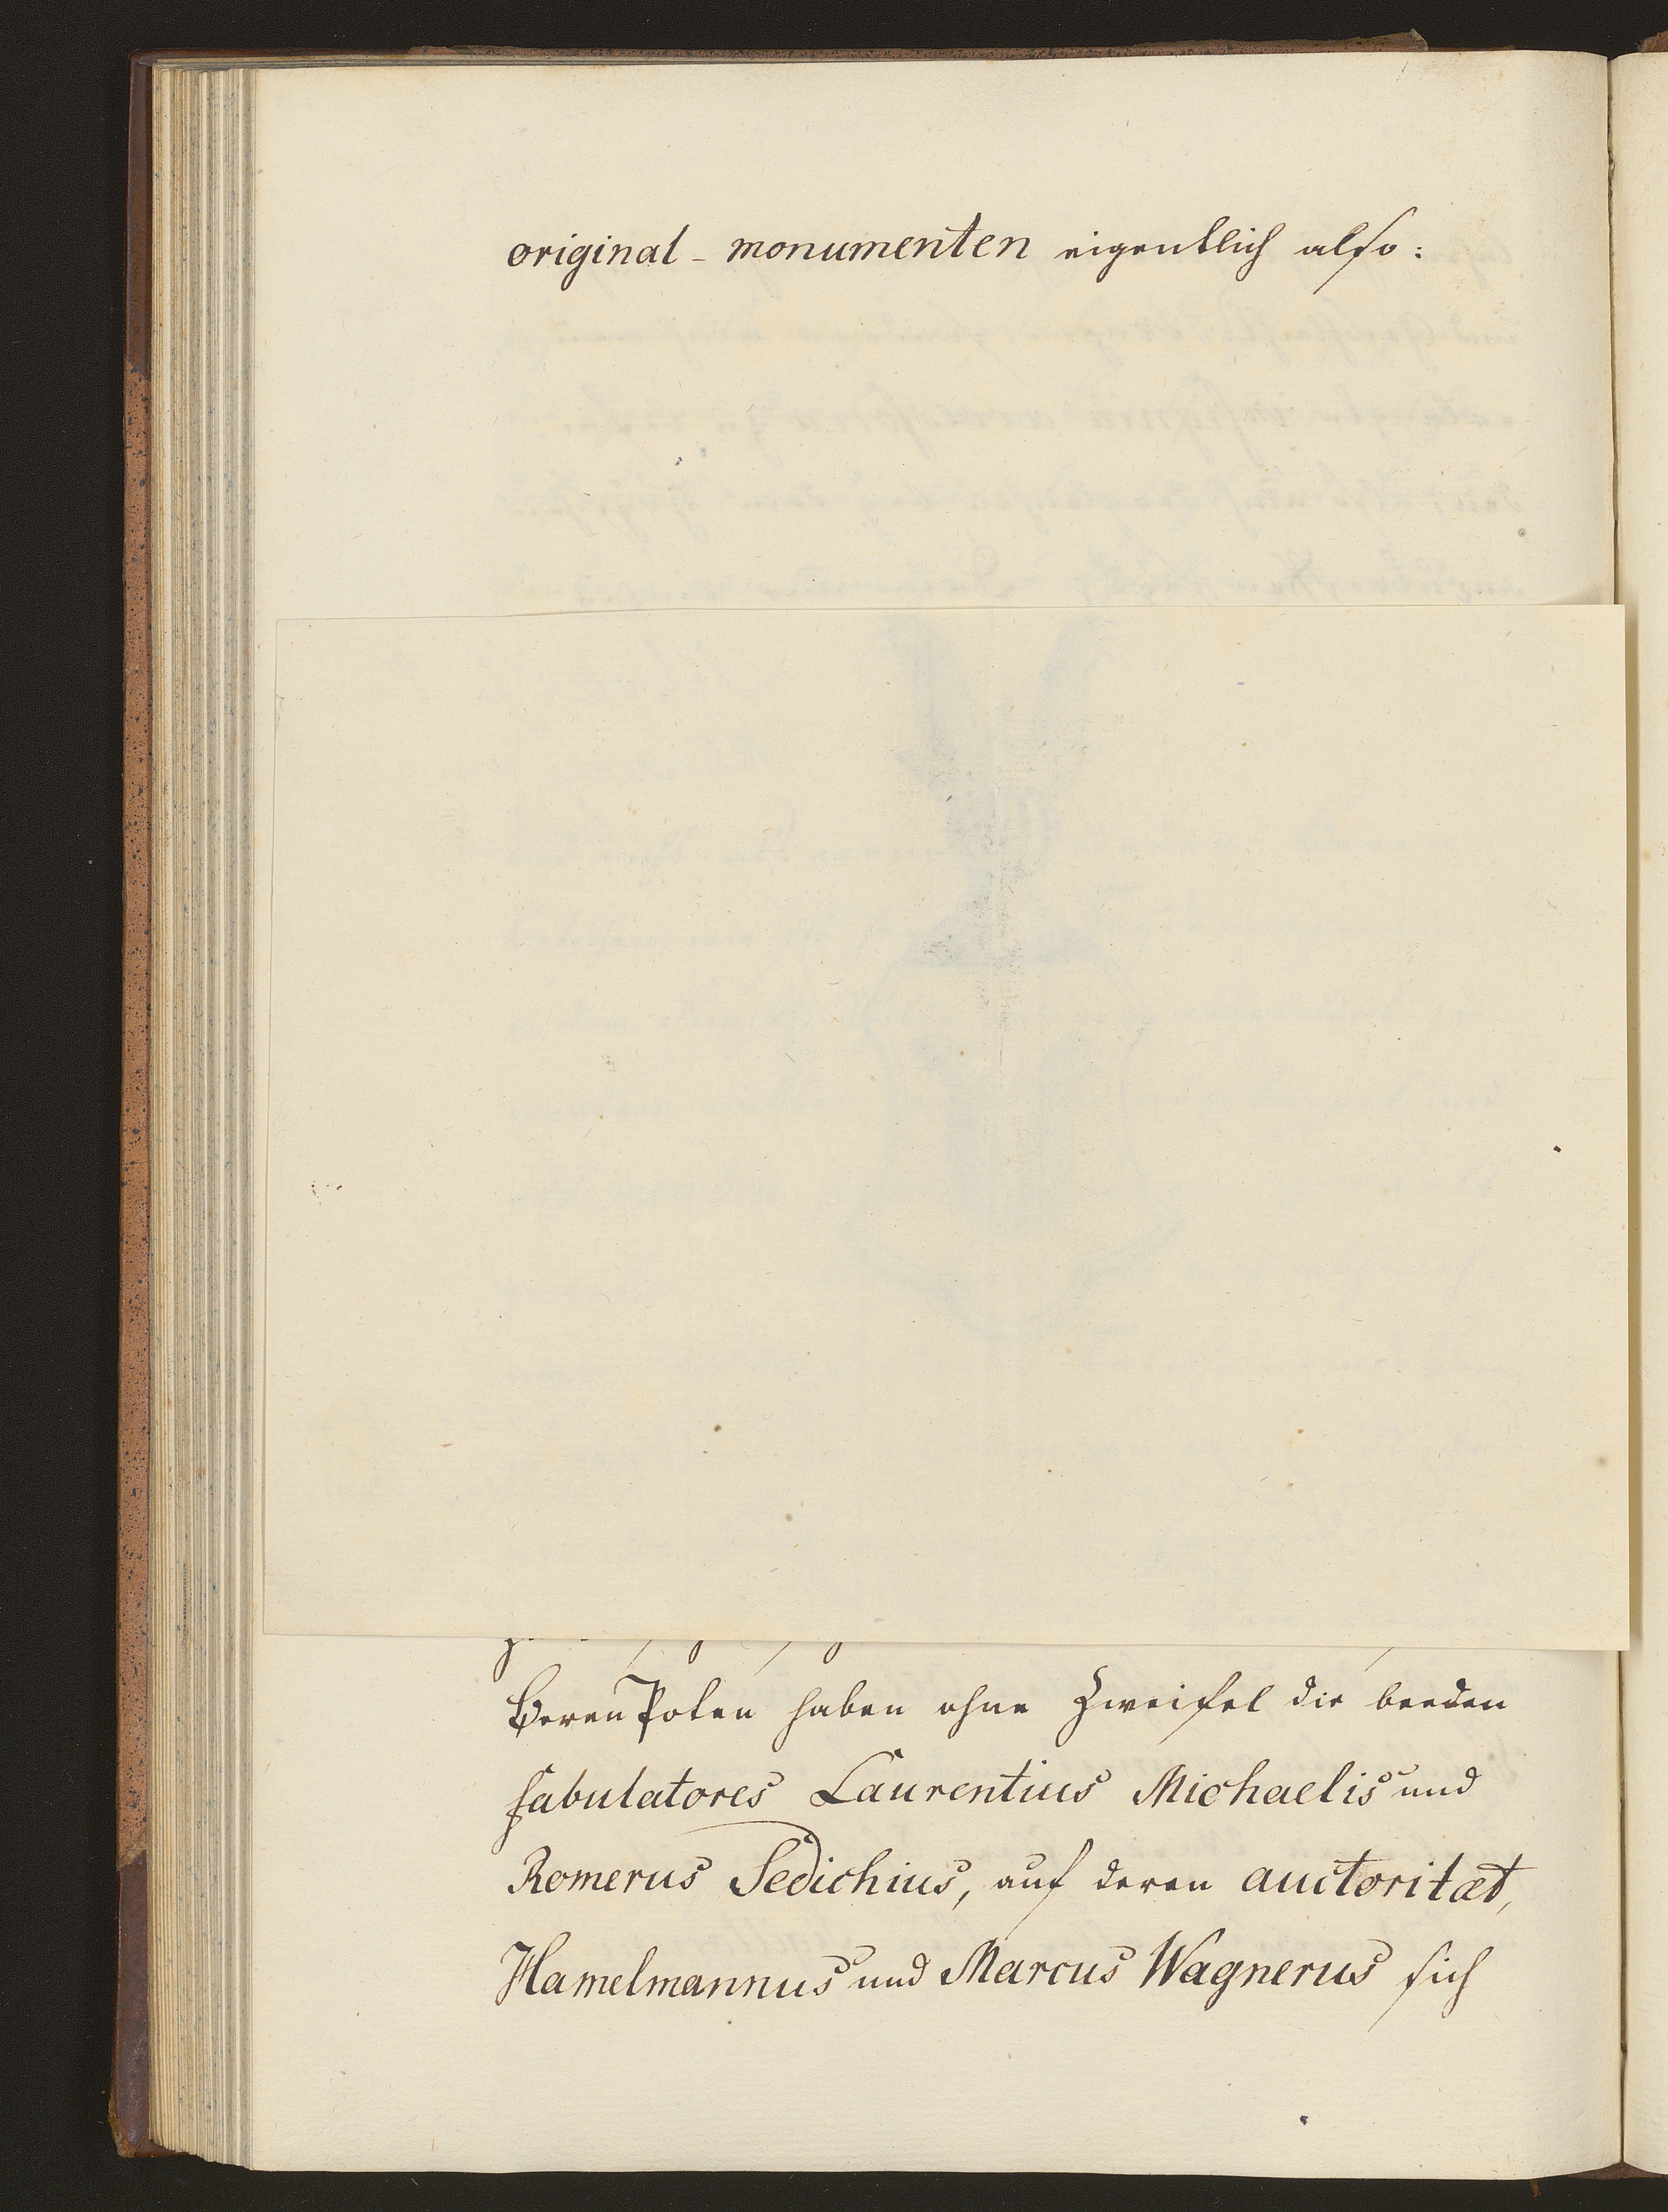 original-monumenten eigentlich also:
Beren Poten haben ohne Zweifel die beeden
fabulatores Laurentius Michaelis und
Romerus Sedichius, auf deren auctoritæt,
Hamelmannus und Marcus Wagnerus sich